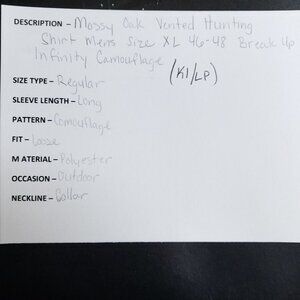 DESCRIPTION – Mossy Oak Vented Hunting
Shirt Mens Size XL 46-48 Break Up
Infinity Camouflage
(K1/LP)
SIZE TYPE – Regular
SLEEVE LENGTH – Long
PATTERN – Camouflage
FIT – Loose
MATERIAL – Polyester
OCCASION – Outdoor
NECKLINE – Collar